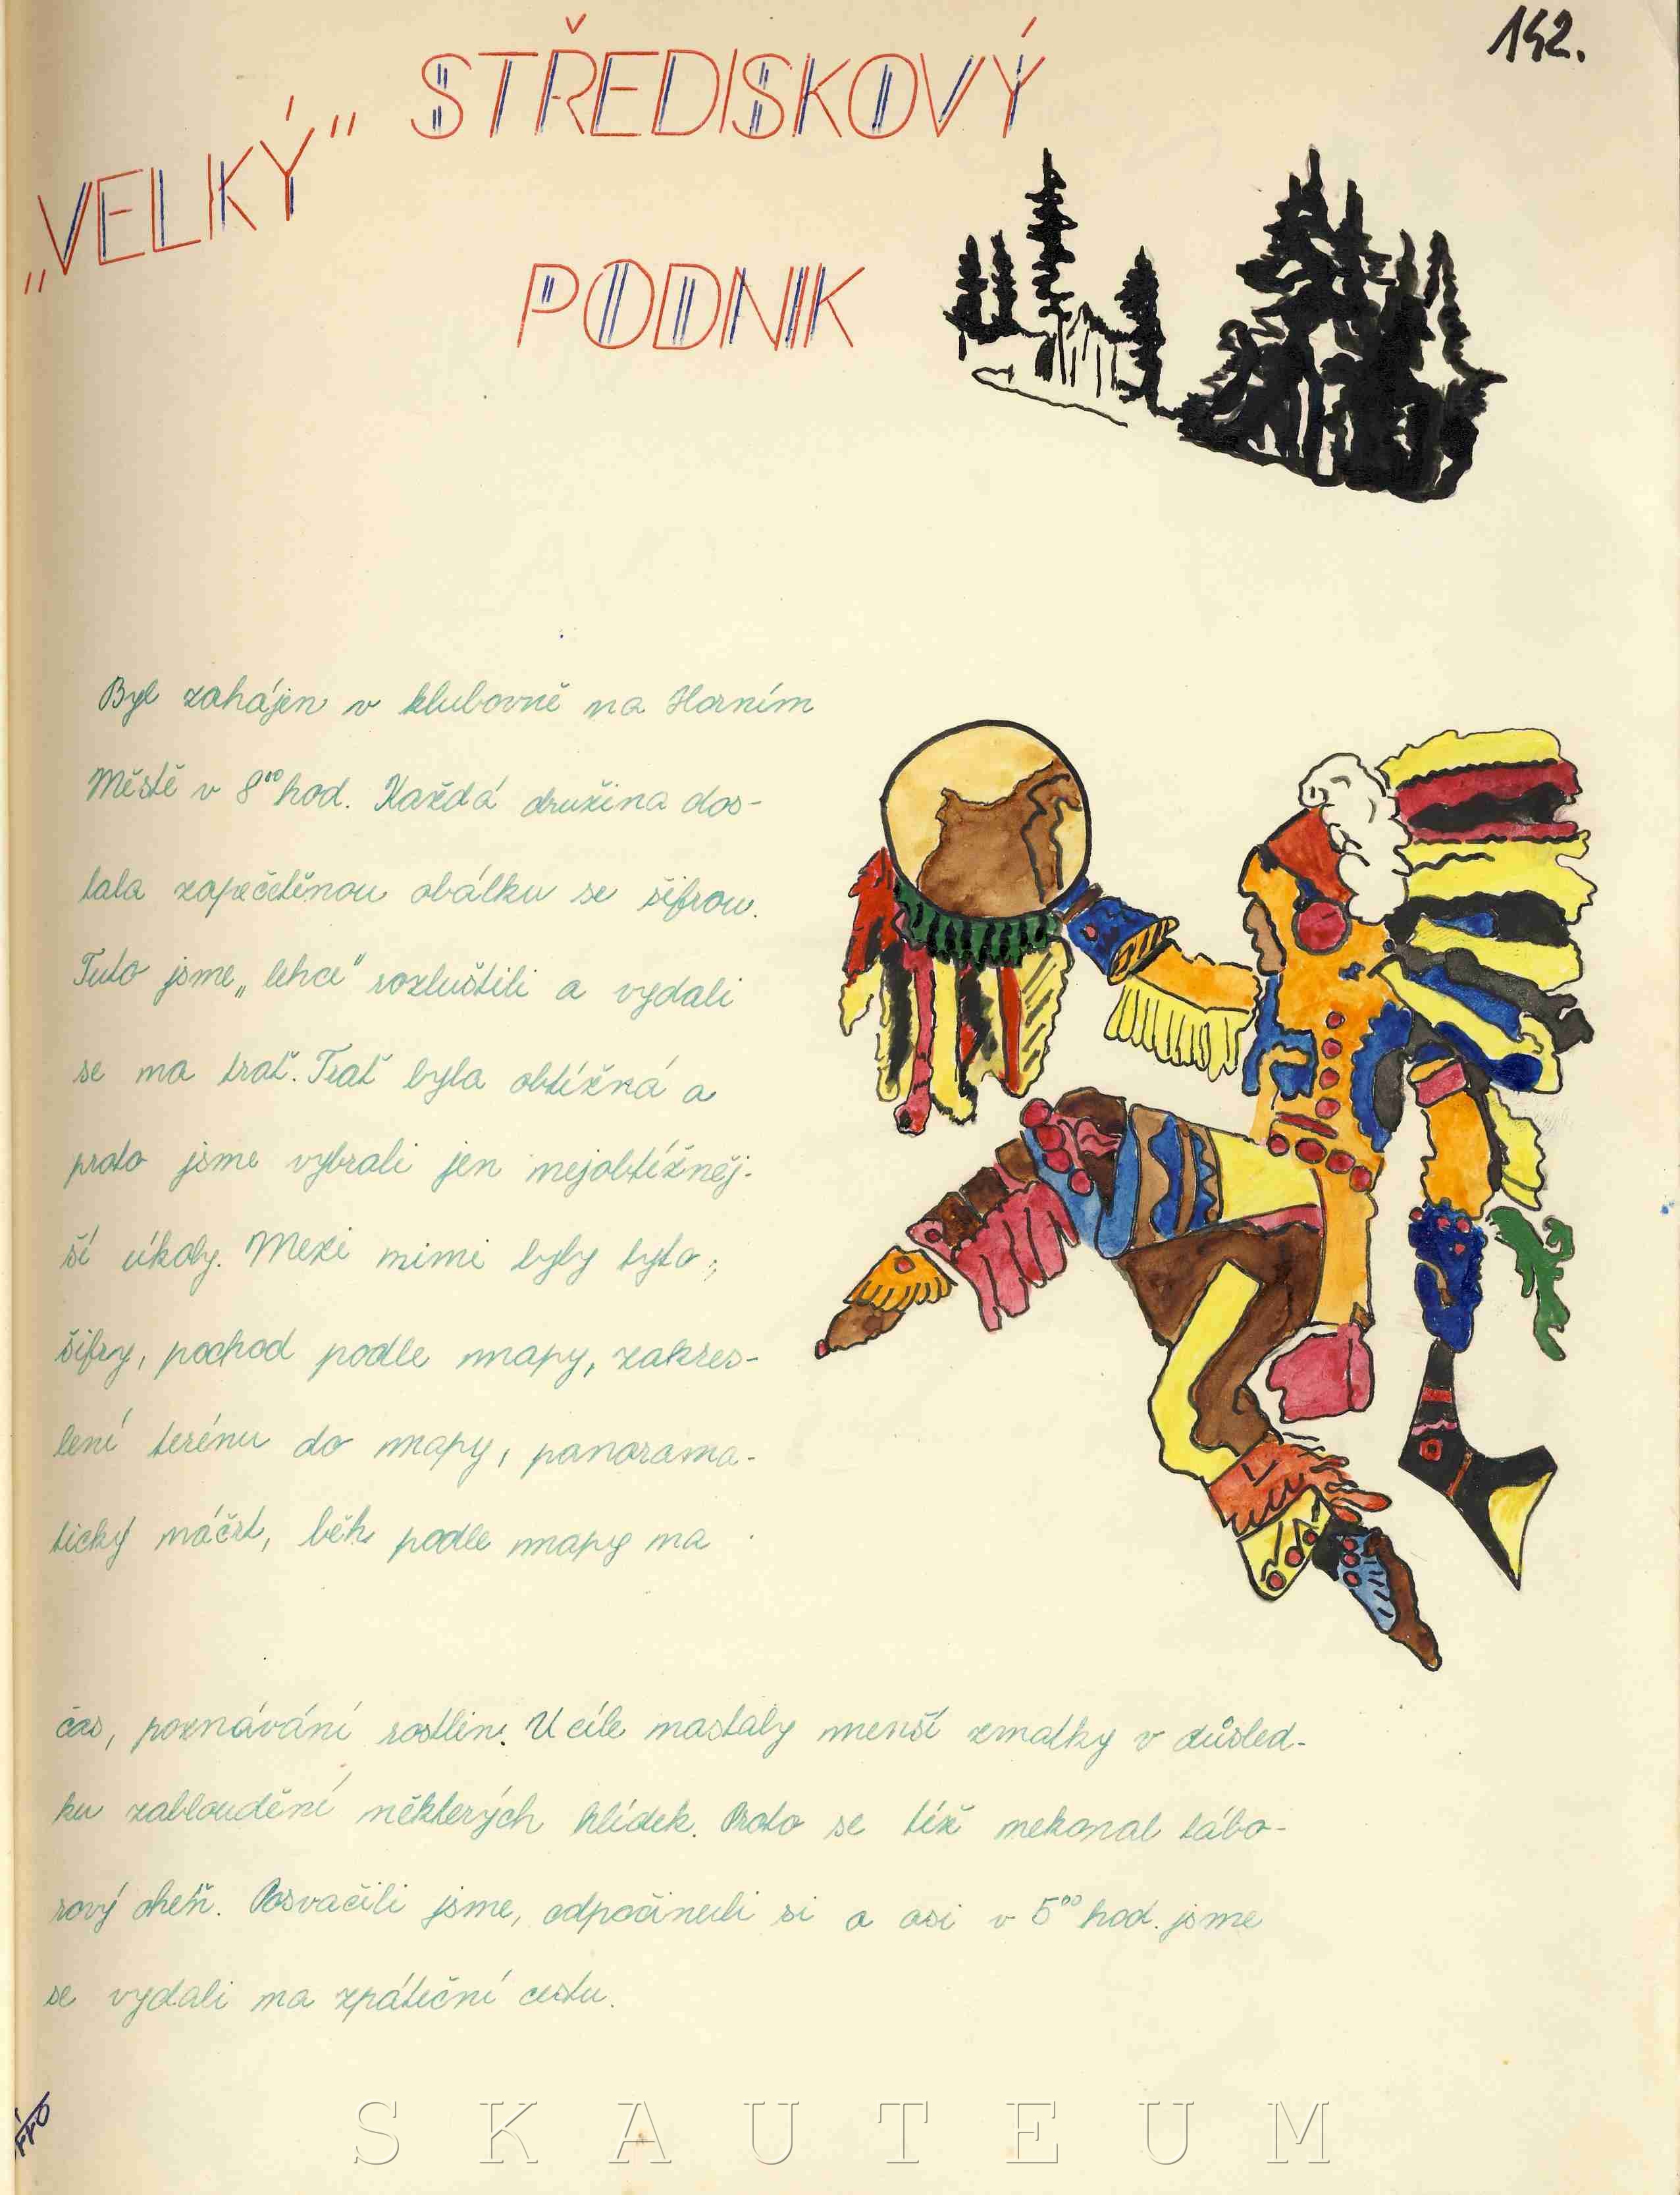 142.
„VELKÝ" STŘEDISKOVÝ
PODNIK
Byl zahájen v klubovně na Horním
Městě v 8⁰⁰ hod. Každá družina dos-
tala zapečetěnou obálku se šifrou.
Tuto jsme „lehce" rozluštili a vydali
se na trať. Trať byla obtížná a
proto jsme vybrali jen nejobtížněj-
ší úkoly. Mezi nimi byly tyto:
šifry, pochod podle mapy, zakres-
lení terénu do mapy, panorama-
tický náčrt, běh podle mapy na
čas, poznávání rostlin. U cíle nastaly menší zmatky v důsled-
ku zabloudění některých hlídek. Proto se též nekonal tábo-
rový oheň. Posvačili jsme, odpočinuli si a asi v 5⁰⁰ hod. jsme
se vydali na zpáteční cestu.
SKAUTEUM